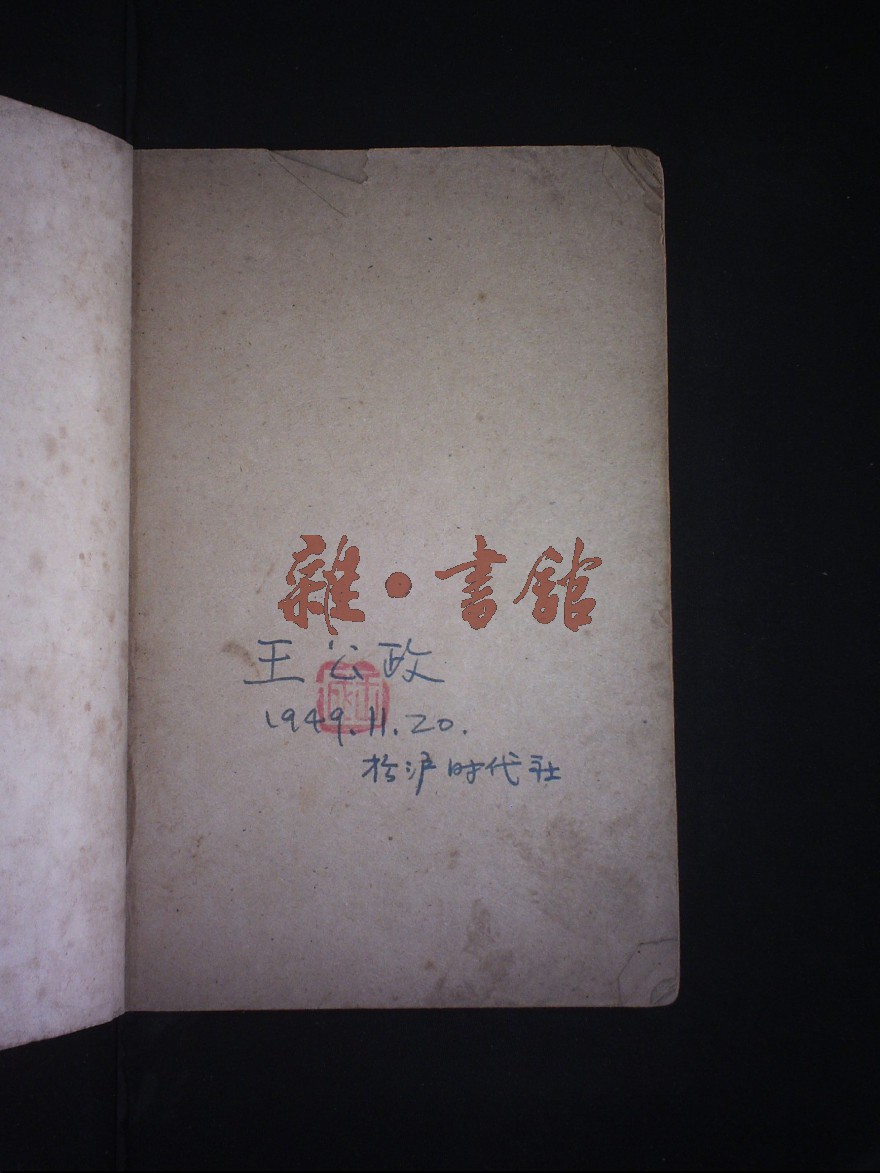 雜·書館
王公政
1949.11.20.
於沪时代社